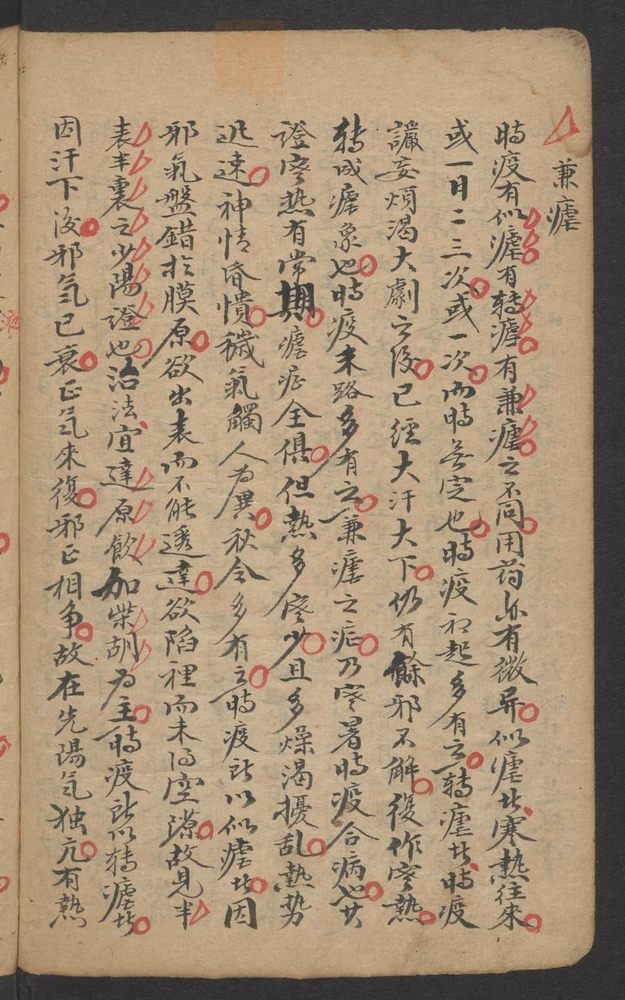 兼瘧
時疫有似瘧有轉瘧有兼瘧之不同用药亦有微异似瘧者寒熱往來
或一日二三次或一次而時無定也時疫初起多有之轉瘧者時疫
讝妄煩渴大劇之後已經大汗大下仍有餘邪不解復作寒熱
轉成瘧象也時疫末路多有之兼瘧之症乃寒暑時疫合病也其
證寒熱有常期瘧症全俱但熱多寒少且多燥渴擾乱熱势
迅速神情昏憒穢氣觸人為異秋令多有之時疫所以似瘧者因
邪氣盤錯於膜原欲出表而不能透達欲陷裡而未得空隙故見半
表半裏之少陽證也治法宜達原飲加柴胡為主時疫所以轉瘧者
因汗下後邪气已衰正气來復邪正相争故在先陽气独亢有熱